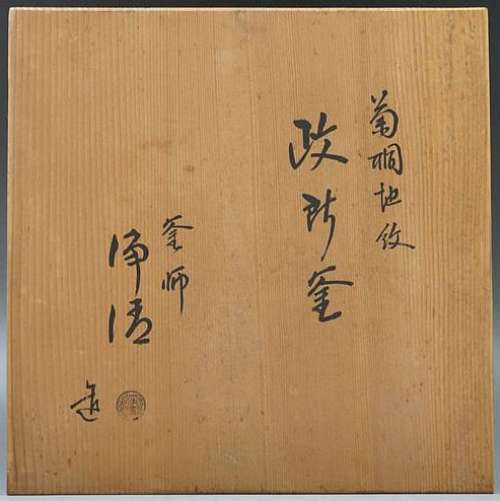 菊桐地紋
政所釜
釜師
浄清
造